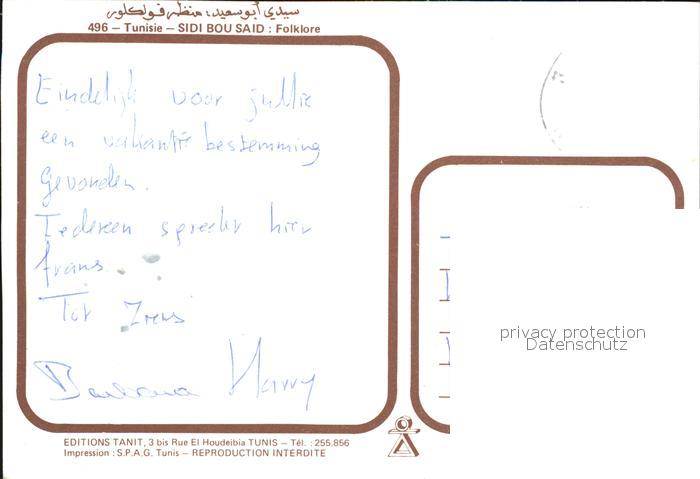 سيدي أبوسعيد: منظر فولكلور
496 – Tunisie – SIDI BOU SAID : Folklore
Eindelijk voor jullie
een vakantie bestemming
gevonden.
Iedereen spreekt hier
frans.
Tot Ziens
Barbara Harry
privacy protection
Datenschutz
EDITIONS TANIT, 3 bis Rue El Houdeibia TUNIS – Tél. : 255,856
Impression : S.P.A.G. Tunis – REPRODUCTION INTERDITE